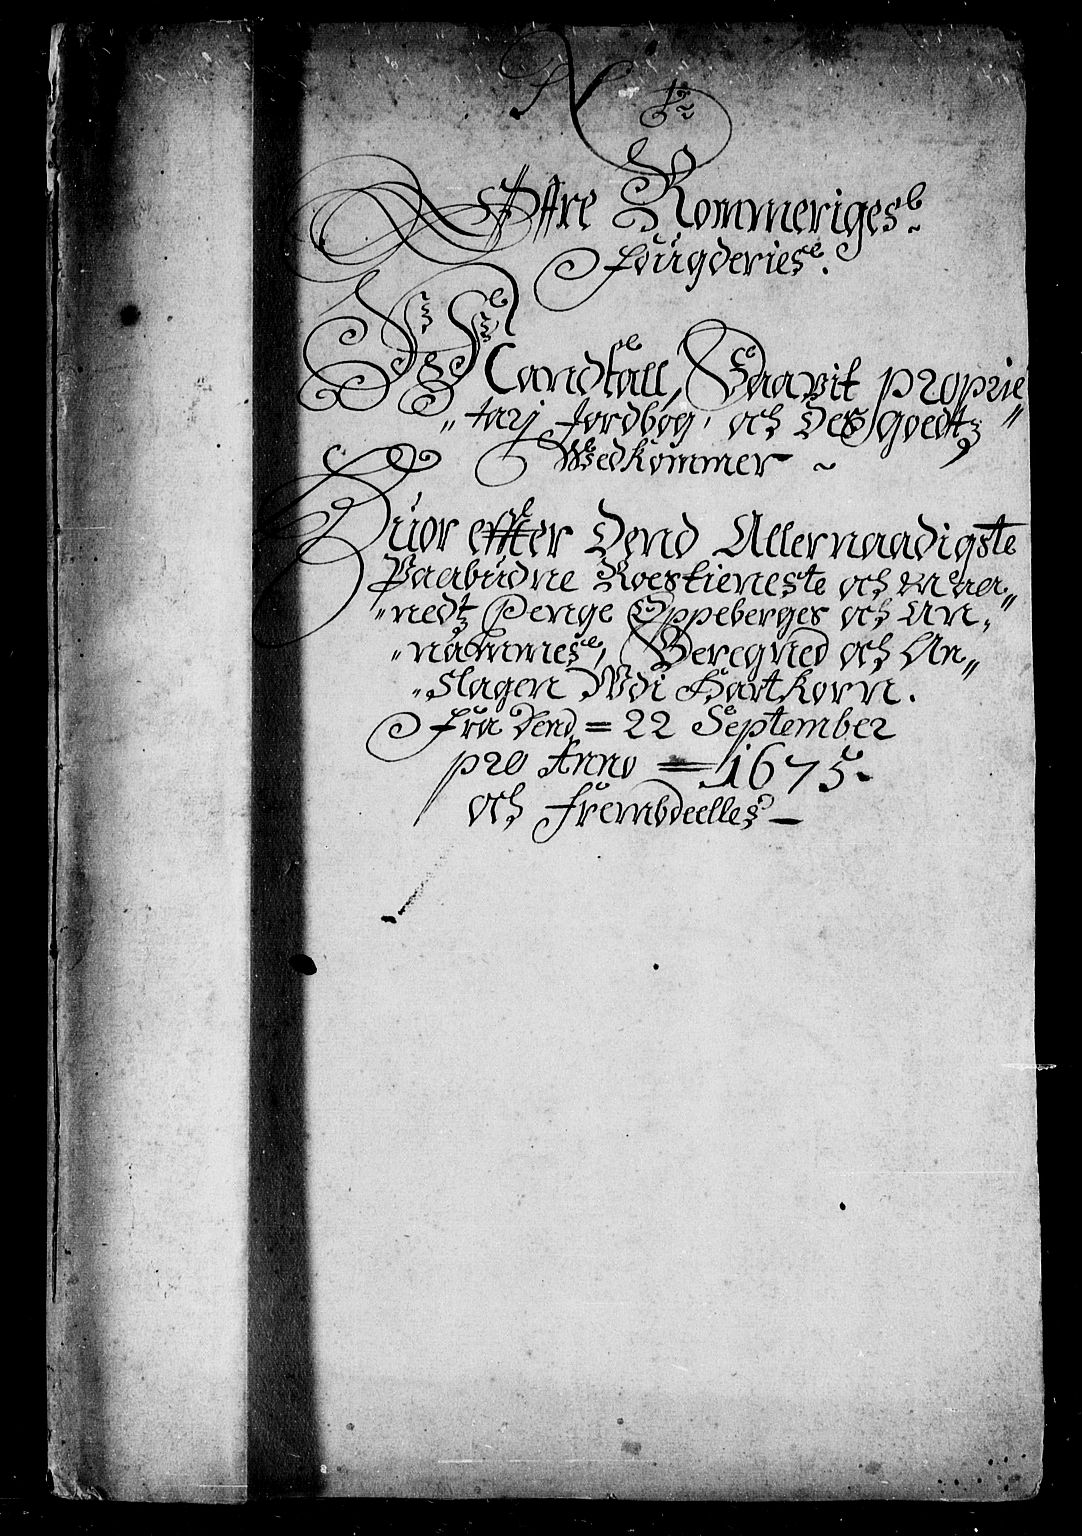 N 12
Øffre Rommeriges
fougderies.
Mandtall, Saavit proprie„
„tarj Jordbog, och Des goedtz
Wedkommer ~
Huor effter Dend Allernaadigste
Paabudne Roestieneste och Maa„
„nedtz Penge Oppeberges och An„
„nammes, Beregned och An„
„slagen Wdi Hartkorn.
fra Dend = 22 September
pro Anno = 1675.
och frembdeelles —